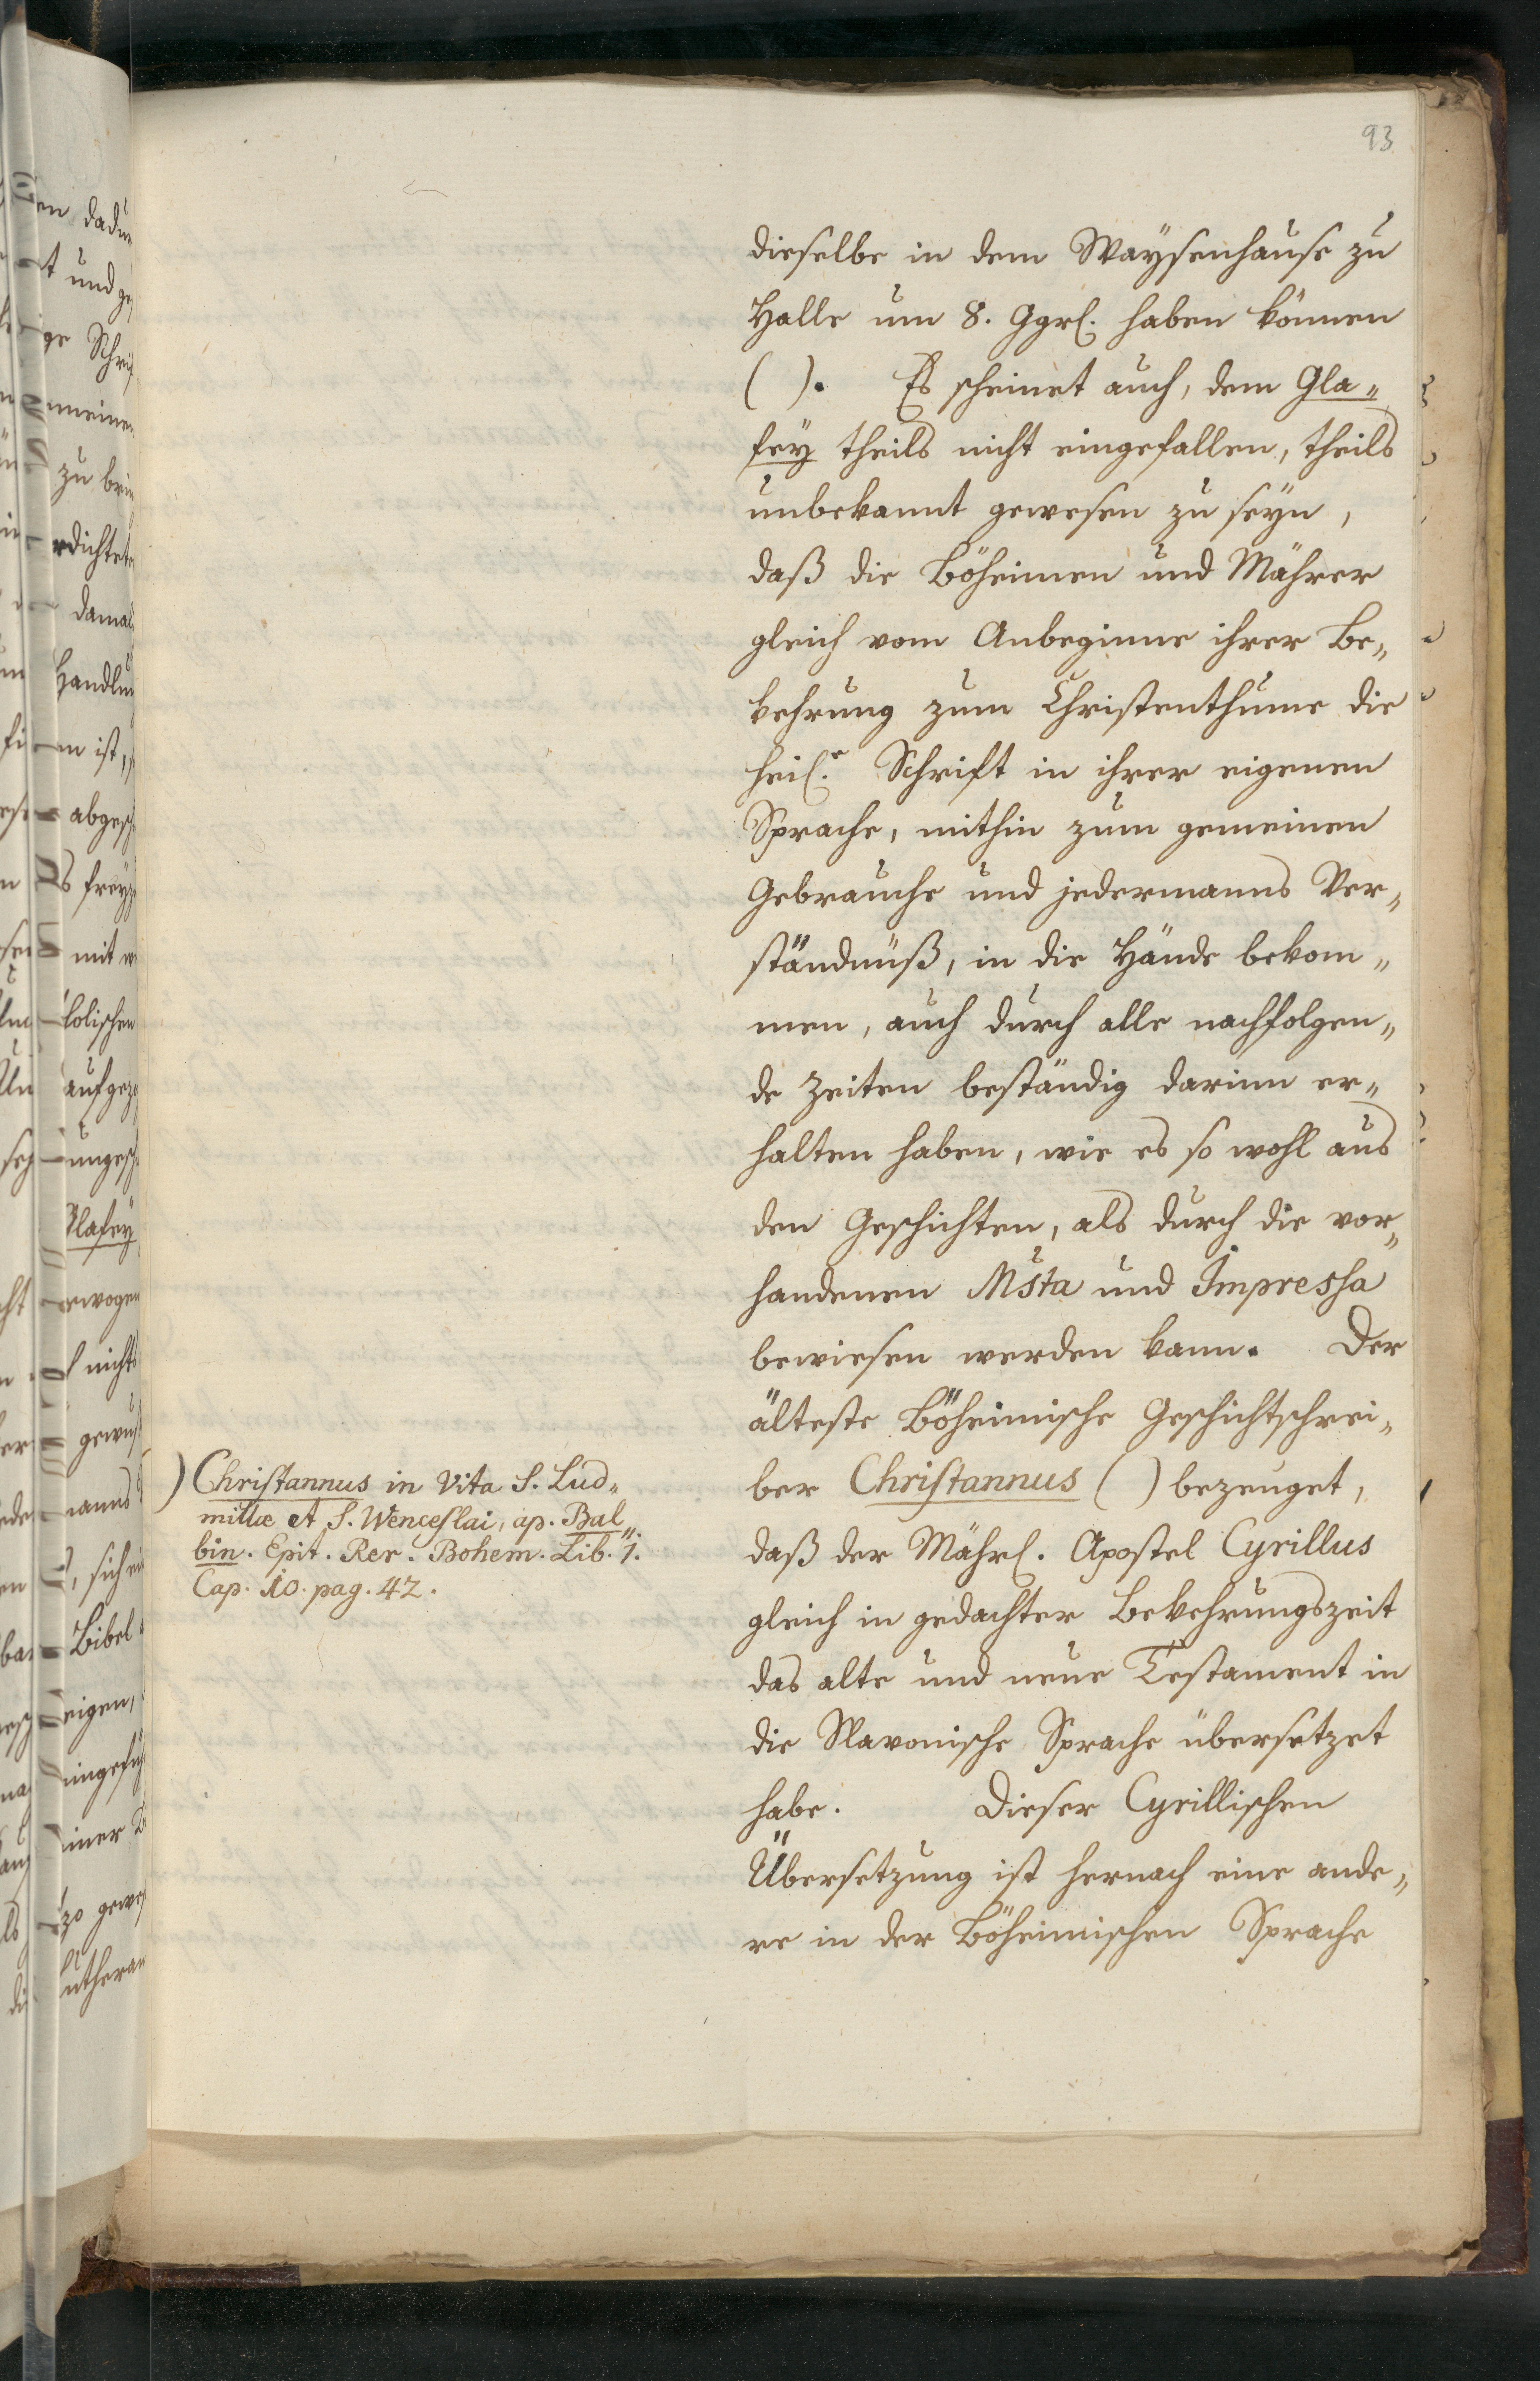 93
dieselbe in dem Waysenhause zu
Halle um 8. Ggrl. haben können
( ). Es scheinet auch, dem Gla„
fey theils nicht eingefallen, theils
unbekannt gewesen zu seyn,
daß die Böheimen und Mährer
gleich vom Anbeginne ihrer Be„
kehrung zum Christenthume die
heil.e Schrift in ihrer eigenen
Sprache, mithin zum gemeinen
Gebrauche und jedermanns Ver„
ständnüß, in die Hände bekom„
men, auch durch alle nachfolgen„
de Zeiten beständig darinn er„
halten haben, wie es so wohl aus
den Geschichten, als durch die vor„
handenen Msta und Impressa
bewiesen werden kann. Der
älteste Böheimische Geschichtschrei„
ber Christannus ( ) bezeuget,
daß der Mährl. Apostel Cyrillus
gleich in gedachter Bekehrungszeit
das alte und neue Testament in
die Slavonische Sprache übersetzet
habe. Dieser Cyrillischen
Übersetzung ist hernach eine ande„
re in der Böheimischen Sprache
) Christannus in Vita S. Lud„
millæ et S. Wenceslai, ap. Bal„
bin. Epit. Rer. Bohem. Lib. 1.
Cap. 10. pag. 42.